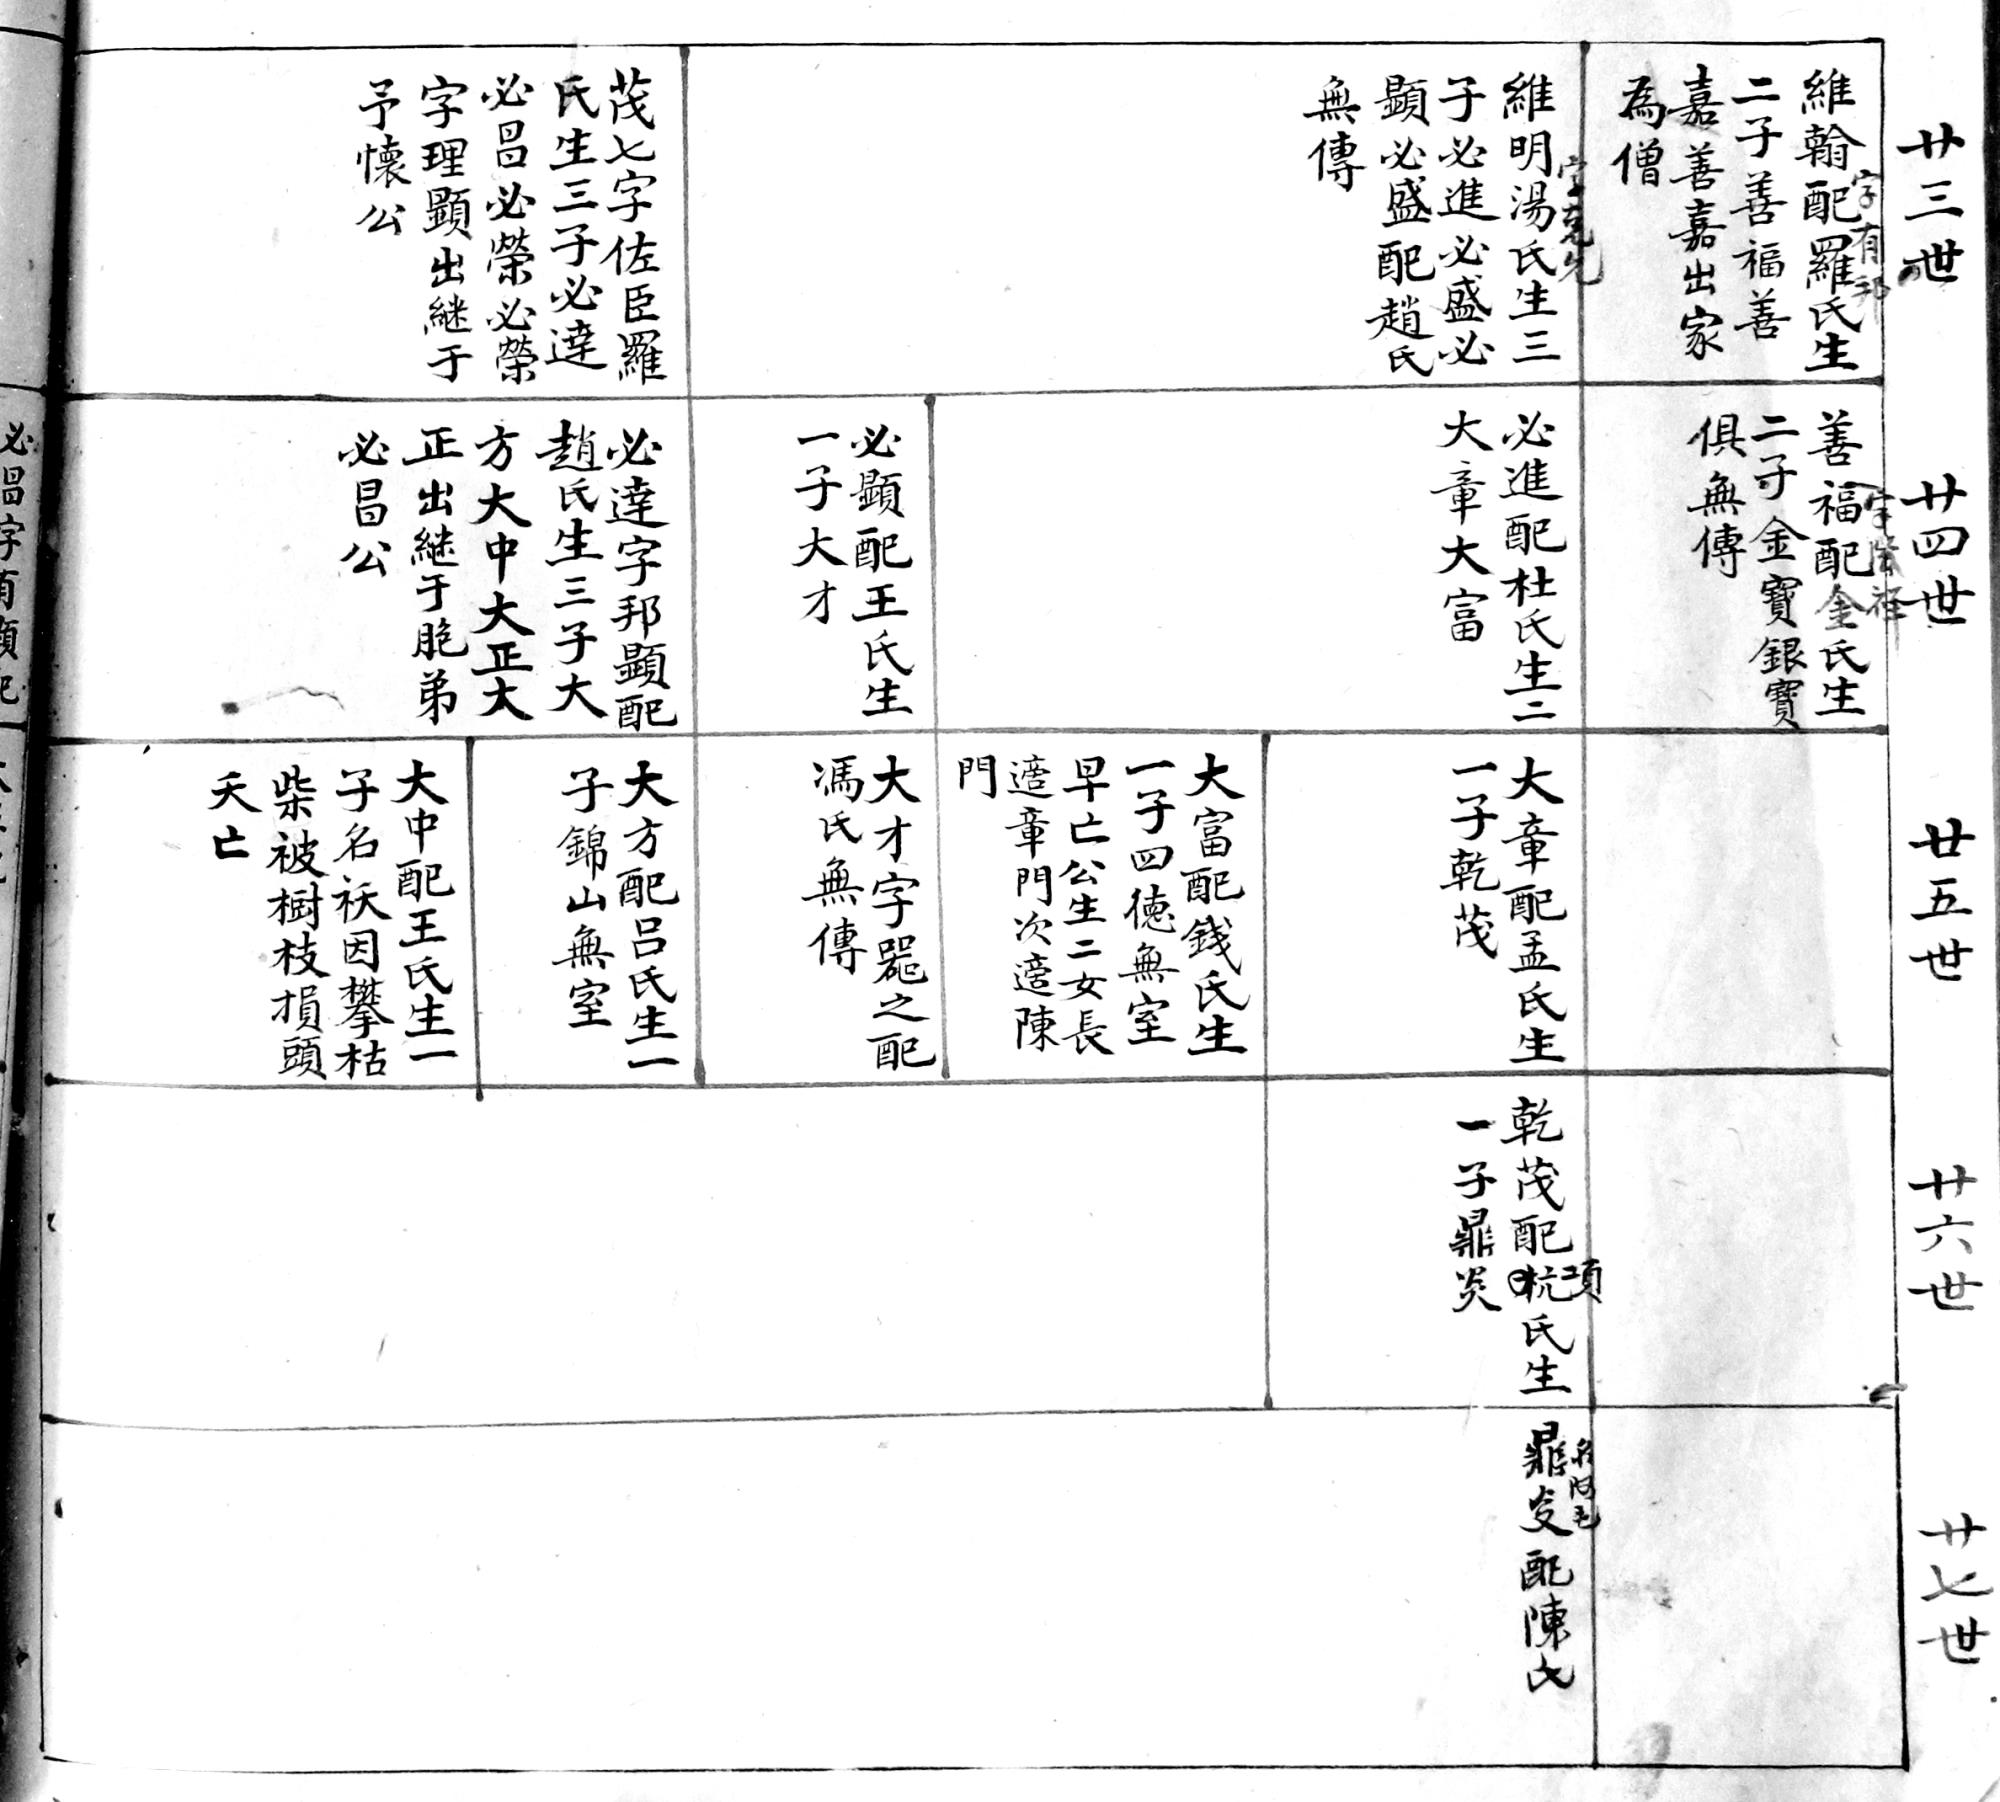 廿三世
維翰配羅氏生
字有邦
二子善福善
嘉善嘉出家
為僧
維明湯氏生三
子必進必盛必
顯必盛配趙氏
無傳
茂七字佐臣羅
氏生三子必達
必昌必榮必榮
字理顯出継于
予懷公
廿四世
善福配金氏生
二子金寶銀寶
俱無傳
必進配杜氏生二
大章大富
必顯配王氏生
一子大才
必達字邦顯配
趙氏生三子大
方大中大正大
正出継于胞弟
必昌公
廿五世
大章配孟氏生
一子乾茂
大富配錢氏生
一子四德無室
早亡公生二女長
適章門次適陳
門
大才字器之配
馮氏無傳
大方配呂氏生一
子錦山無室
大中配王氏生一
子名祆因攀枯
柴被樹枝損頭
夭亡
廿六世
乾茂配杭氏生
項
一子鼎炎
廿七世
鼎炎配陳氏
名阿毛
必昌字有顯配